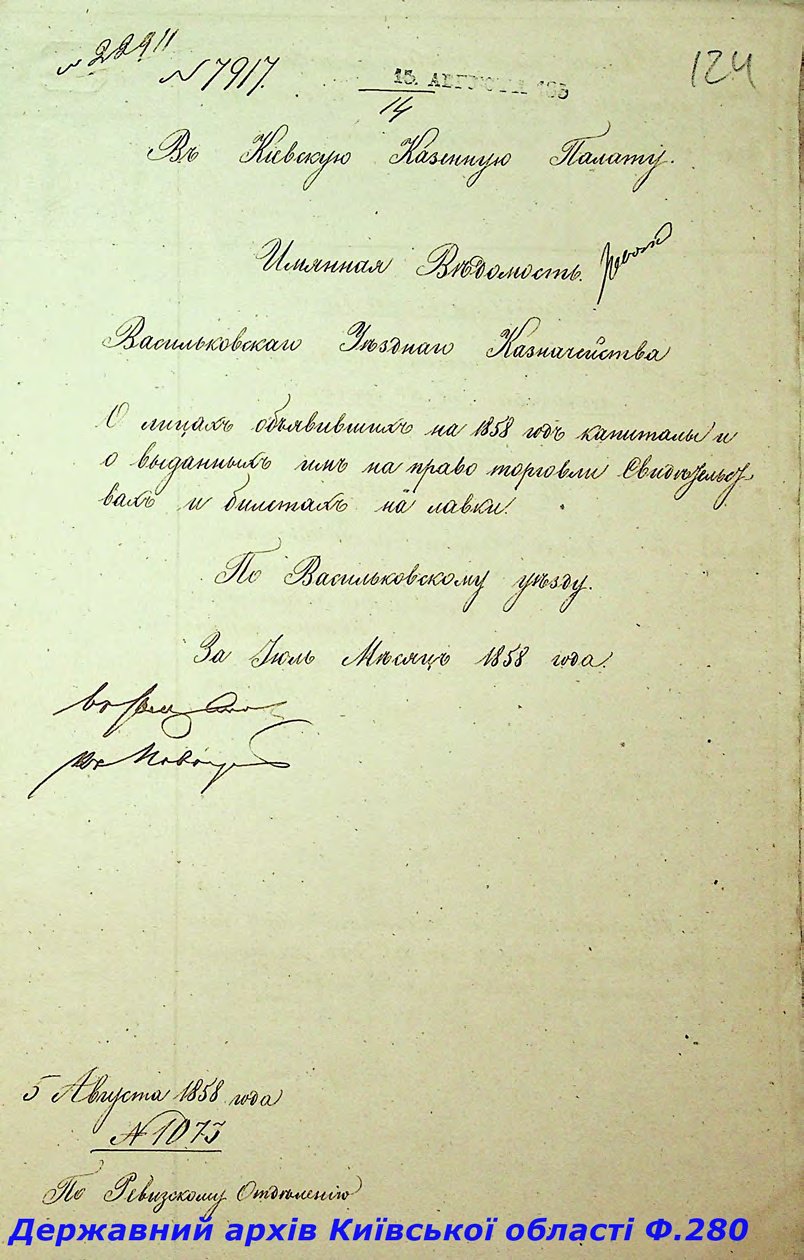 № 22911
№ 7917.
15. АВГУСТА 185
14
124
Въ Кіевскую Казенную Палату.
Имянная Вѣдомость.
Васильковскаго Уѣзднаго Казначейства
О лицахъ объявившихъ на 1858 годъ капиталы и
о выданныхъ имъ на право торговли Свидѣтельст
вахъ и билетахъ на лавки.
По Васильковскому уѣзду.
За Іюль Мѣсяцъ 1858 года.
5 Августа 1858 года
№ 1073
По Ревизскому Отдѣленію
Державний архів Київської області Ф.280